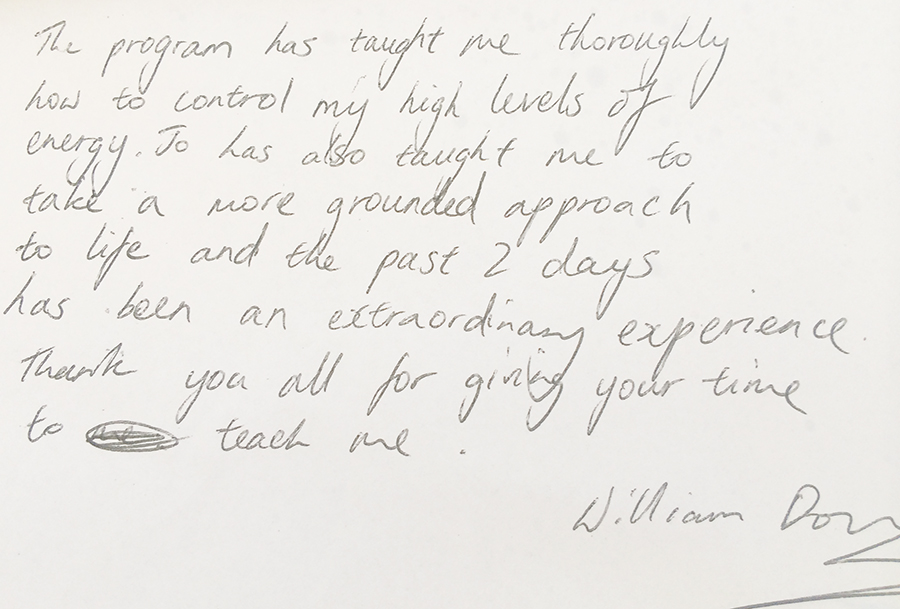 The program has taught me thoroughly
how to control my high levels of
energy. Jo has also taught me to
take a more grounded approach
to life and the past 2 days
has been an extraordinary experience.
Thank you all for giving your time
to teach me.
William